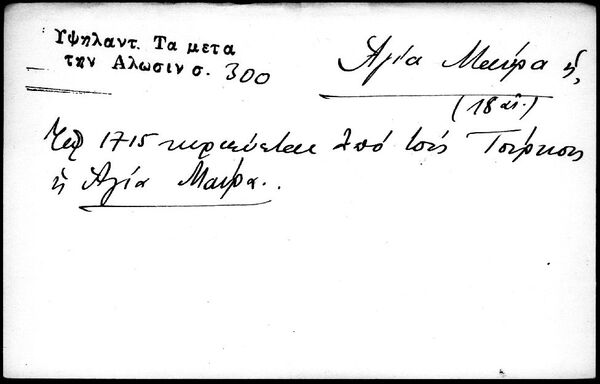 Υψηλαντ. Τα μετα
την Αλωσιν σ. 300
Αγία Μαύρα ή,
(18 αἰ.)
Τῷ 1715 κυριεύεται ὑπό τούς Τούρκους
ἡ Αγία Μαύρα..